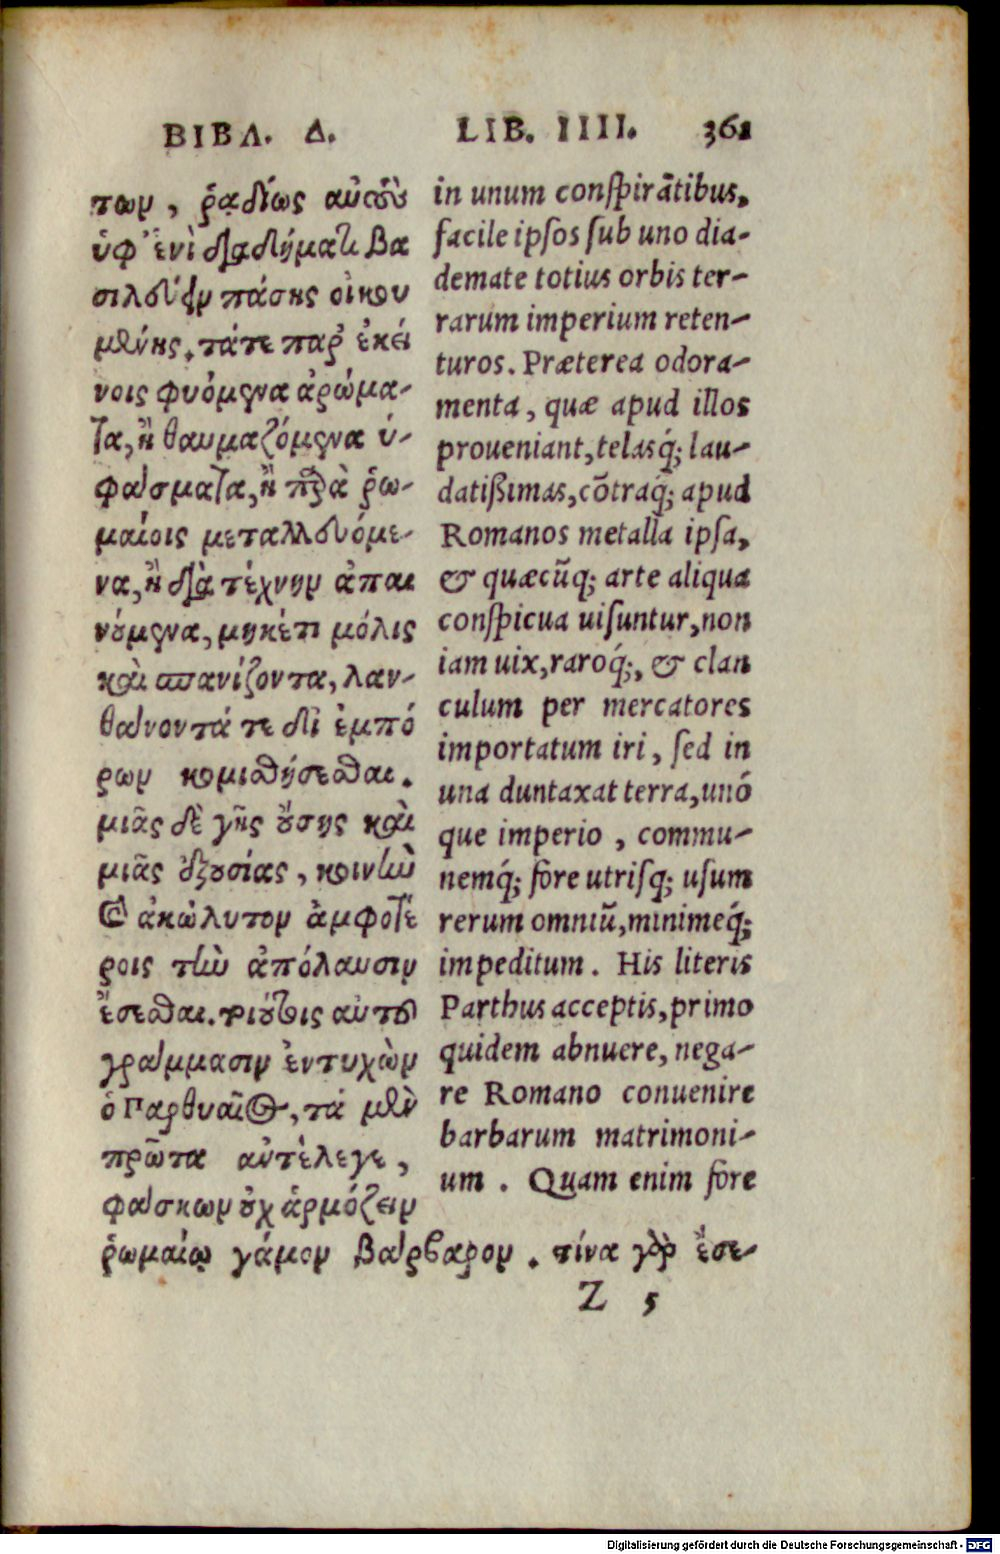 ΒΙΒΛ. Δ.
των, ῥᾳδίως αὐτοὺς
ὑφ' ἑνὶ διαδήματι βα
σιλεύειν πάσης οἰκου
μένης. τά τε παρ' ἐκεί
νοις φυόμενα ἀρώμα-
τα, ἢ θαυμαζόμενα ὑ-
φάσματα, ἢ παρὰ ῥω-
μαίοις μεταλλευόμε-
να, ἢ διὰ τέχνην ἀπαι
νούμενα, μηκέτι μόλις
καὶ σπανίζοντα, λαν-
θάνοντά τε δι' ἐμπό
ρων κομισθήσεσθαι.
μιᾶς δὲ γῆς οὔσης καὶ
μιᾶς ἐξουσίας, κοινὴν
καὶ ἀκώλυτον ἀμφοτέ
ροις τὴν ἀπόλαυσιν
ἔσεσθαι. τοιούτοις αὐτοῦ
γράμμασιν ἐντυχὼν
ὁ Παρθυαῖος, τὰ μὲν
πρῶτα ἀντέλεγε,
φάσκων οὐχ ἁρμόζειν
ῥωμαίῳ γάμον βάρβαρον. τίνα γὰρ ἔσε-
LIB. IIII. 361
in unum conspirātibus,
facile ipsos sub uno dia-
demate totius orbis ter-
rarum imperium reten-
turos. Præterea odora-
menta, quæ apud illos
proueniant, telasq́; lau-
datißimas, cōtraq́; apud
Romanos metalla ipsa,
& quæcūq; arte aliqua
conspicua uisuntur, non
iam uix, raroq́;, & clan
culum per mercatores
importatum iri, sed in
una duntaxat terra, unó
que imperio, commu-
nemq́; fore utrisq; usum
rerum omniū, minimeq́;
impeditum. His literis
Parthus acceptis, primo
quidem abnuere, nega-
re Romano conuenire
barbarum matrimoni-
um. Quam enim fore
Z 5
Digitalisierung gefördert durch die Deutsche Forschungsgemeinschaft - DFG